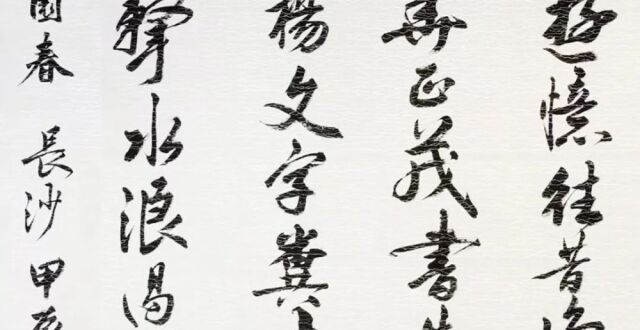 遊憶往昔崢
華正茂書生
揚文字糞
擊水浪遏
園春 長沙 甲辰